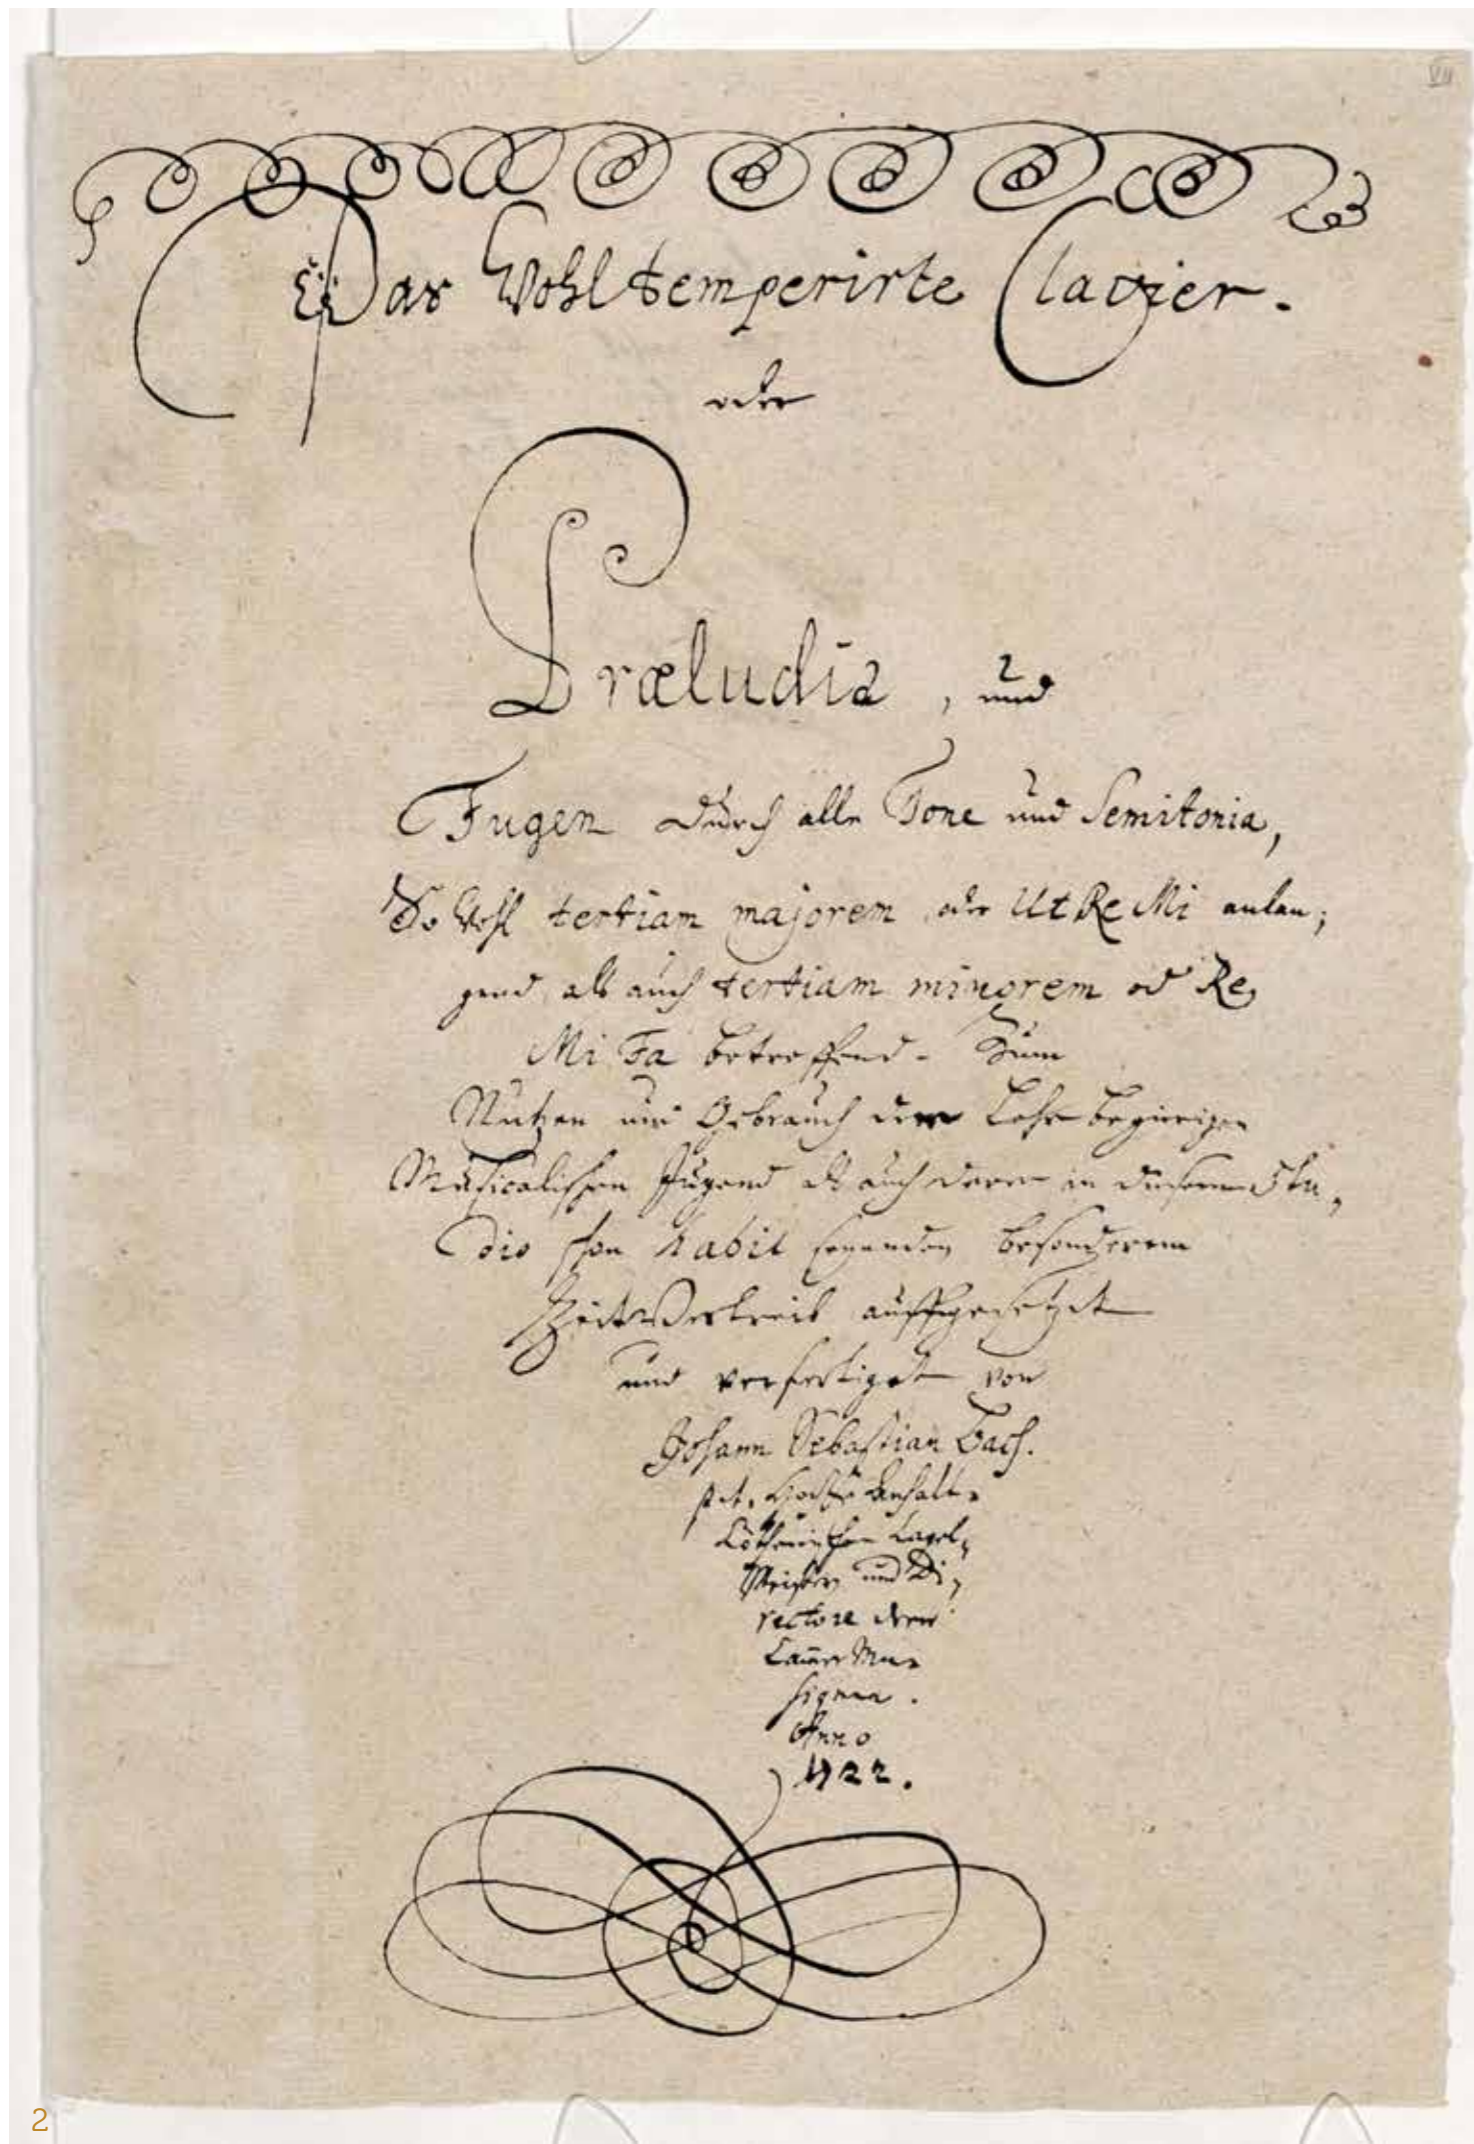 VII
Das Wohltemperirte Clavier.
oder
Præludia, und
Fugen durch alle Tone und Semitonia,
So wohl tertiam majorem oder Ut Re Mi anlan,
gend, als auch tertiam minorem od Re
Mi Fa betreffend. Zum
Nutzen und Gebrauch der Lehr begierigen
Musicalischen Jugend als auch derer in diesem Stu,
dio schon habil seyenden besonderem
ZeitVertreib auffgesetzet
und verfertiget von
Johann Sebastian Bach.
p.t. HochF Anhalt.
Cöthenischen Capel,
Meistern und Di,
rectore derer
Cam̅er Mu,
siquen.
Anno
1722.
2